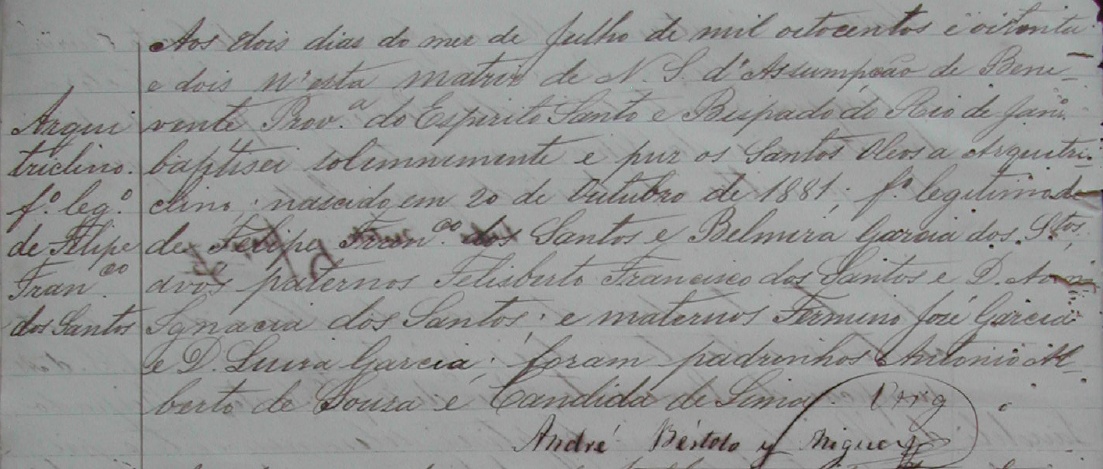 Aos dois dias do mez de Julho de mil oitocentos e oitenta
e dois n'esta matriz de N. S. d'Assumpção de Bene-
Arqui
vente Prov.ª do Espirito Santo e Bispado do Rio de Janr.º
triclino.
baptisei solemnemente e puz os Santos Oleos a Arquitri-
f.º leg.º
clino; nascido em 20 de Outubro de 1881; f.º legitimo de
de Filipe
de Felipe Fran.co dos Santos e Belmira Garcia dos S.tos
Fran.co
avós paternos Felisberto Francisco dos Santos e D. Anna
dos Santos
Ignacia dos Santos; e maternos Firmino José Garcia
e D. Luiza Garcia; foram padrinhos Antonio Al-
berto de Souza e Candida de Lima.
André Bértolo y